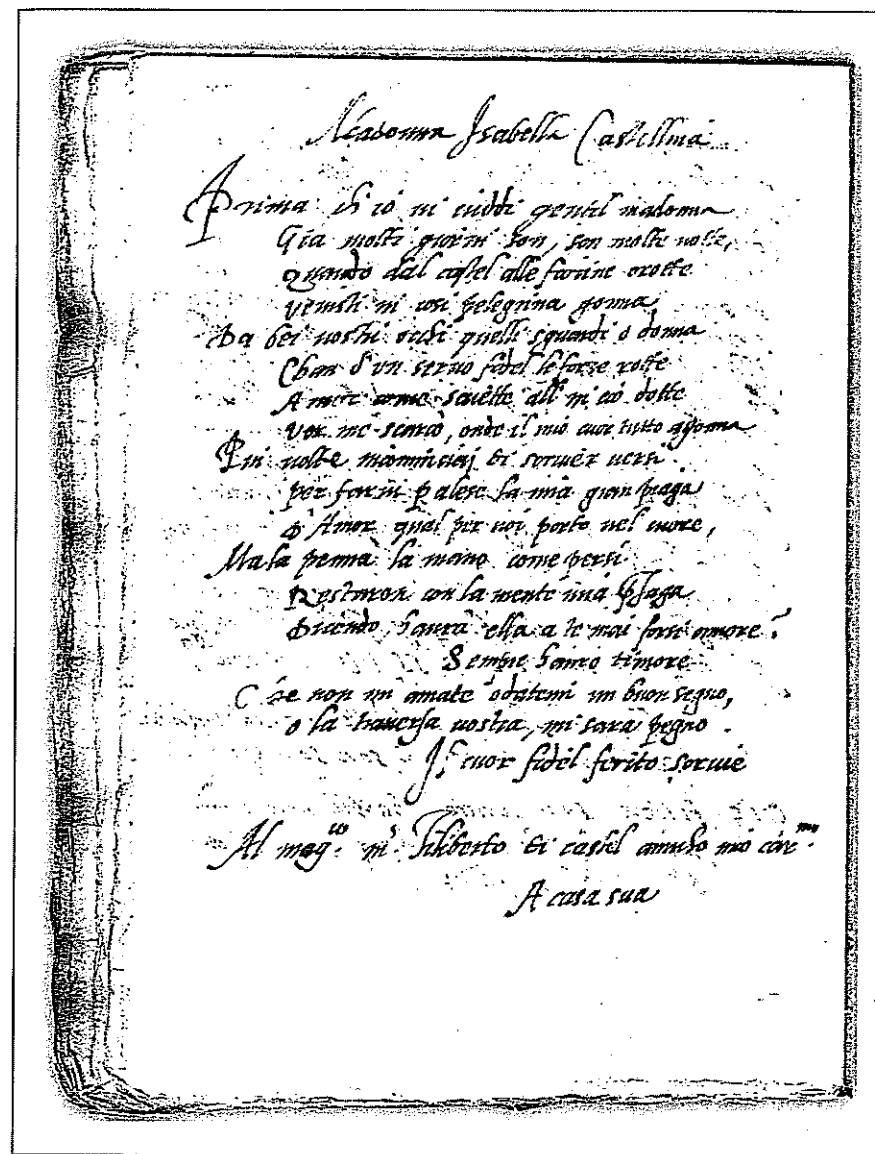 Madonna Isabella Castellina
Prima ch'io vi viddi gentil madonna
Gia molti giorni son, son molte notte,
Quando dal castel alle grotte
Venisti in cosi pelegrina gonna
Da bei vostri occhi quelli sguardi o donna
Chan d'un servo fidel le forze rotte
Amor arme saette all'
Ver me scarcò, onde il mio cuor tutto
Piu volte incominciaj di scriver versi
Per farvi palese la mia gran piaga
D'Amor qual per voi porto nel cuore,
Ma la penna la mano come persi
Restaron con la mente mia
Dicendo, haura ella a te mai forsi amore?
Sempre hauro timore
Che non mi amate odatemi un buon segno,
o la traversa vostra, mi sara pegno.
Il cuor fidel ferito scrive
Al mag.co m. Filiberto di castel amico mio car.mo
A casa sua